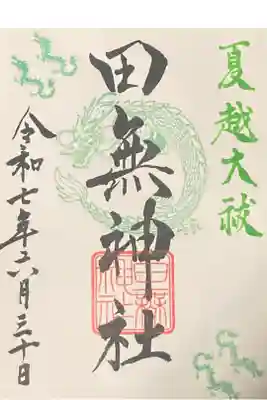 夏越大祓
田無神社
令和七年六月三十日
田無神社